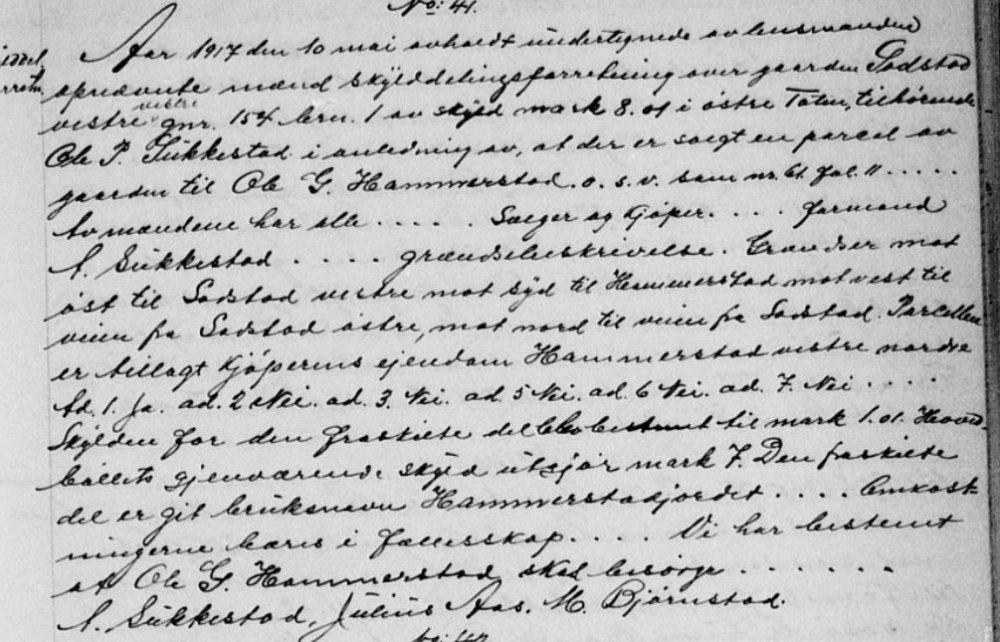 No: 41.
Aar 1917 den 10 mai avholdt undertegnede av lensmanden
opnævnte mænd skylddelingsforretning over gaarden Sodstad
vestre vestre gnr. 154 brn. 1 av skyld mark 8.01 i østre Toten, tilhørende
Ole P. Sukkestad i anledning av, at der er solgt en parcel av
gaarden til Ole G. Hammerstad. o. s. v. som nr. 61 fol. 11 . . . . .
Av mændene har alle . . . . . Sælger og kjøper. . . . formand
A. Sukkestad . . . . grændsebeskrivelse. Grændser mot
øst til Sodstad vestre mot syd til Hammerstad mot vest til
veien fra Sodstad østre, mot nord til veien fra Sodstad. Parcellen
er tillagt kjøperens ejendom Hammerstad vestre nordre
Ad. 1. Ja. ad. 2 Nei. ad. 3. Nei. ad. 5 Nei. ad. 6 Nei. ad. 7. Nei . . . .
Skylden for den fraskilte del blev bestemt til mark 1.01. Hoved-
bøllets gjenværende skyld utgjør mark 7. Den fraskilte
del er git bruksnavn Hammerstadjordet . . . . Omkost-
ningerne bæres i fællesskap. . . . . Vi har bestemt
at Ole G. Hammerstad skal besørge . . . . . .
A. Sukkestad, Julius Aas. M. Bjørnstad.